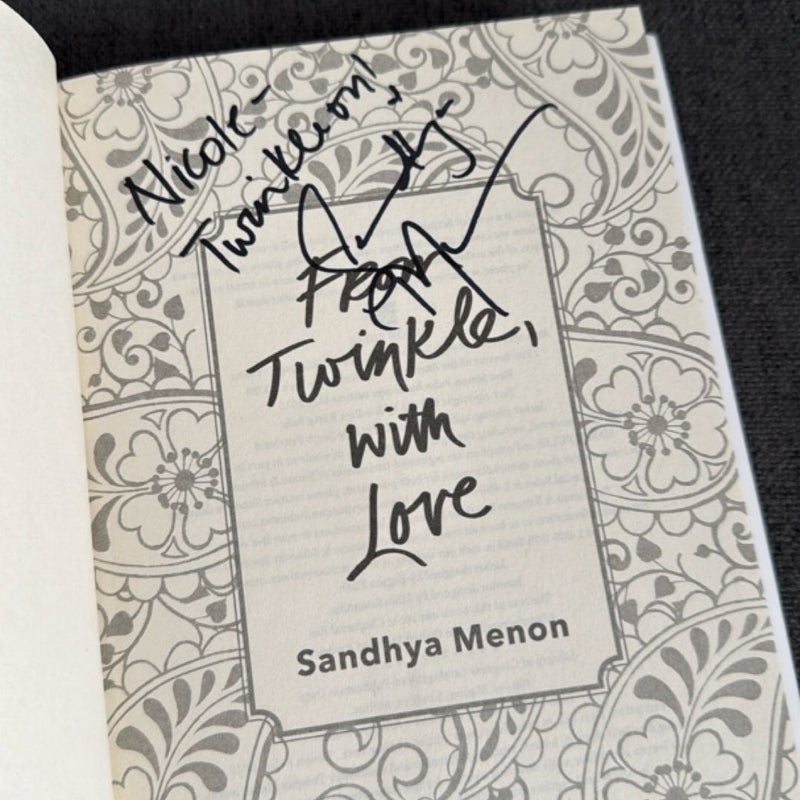 Nicole-
Twinkle on!
From
Twinkle,
with
Love
Sandhya Menon